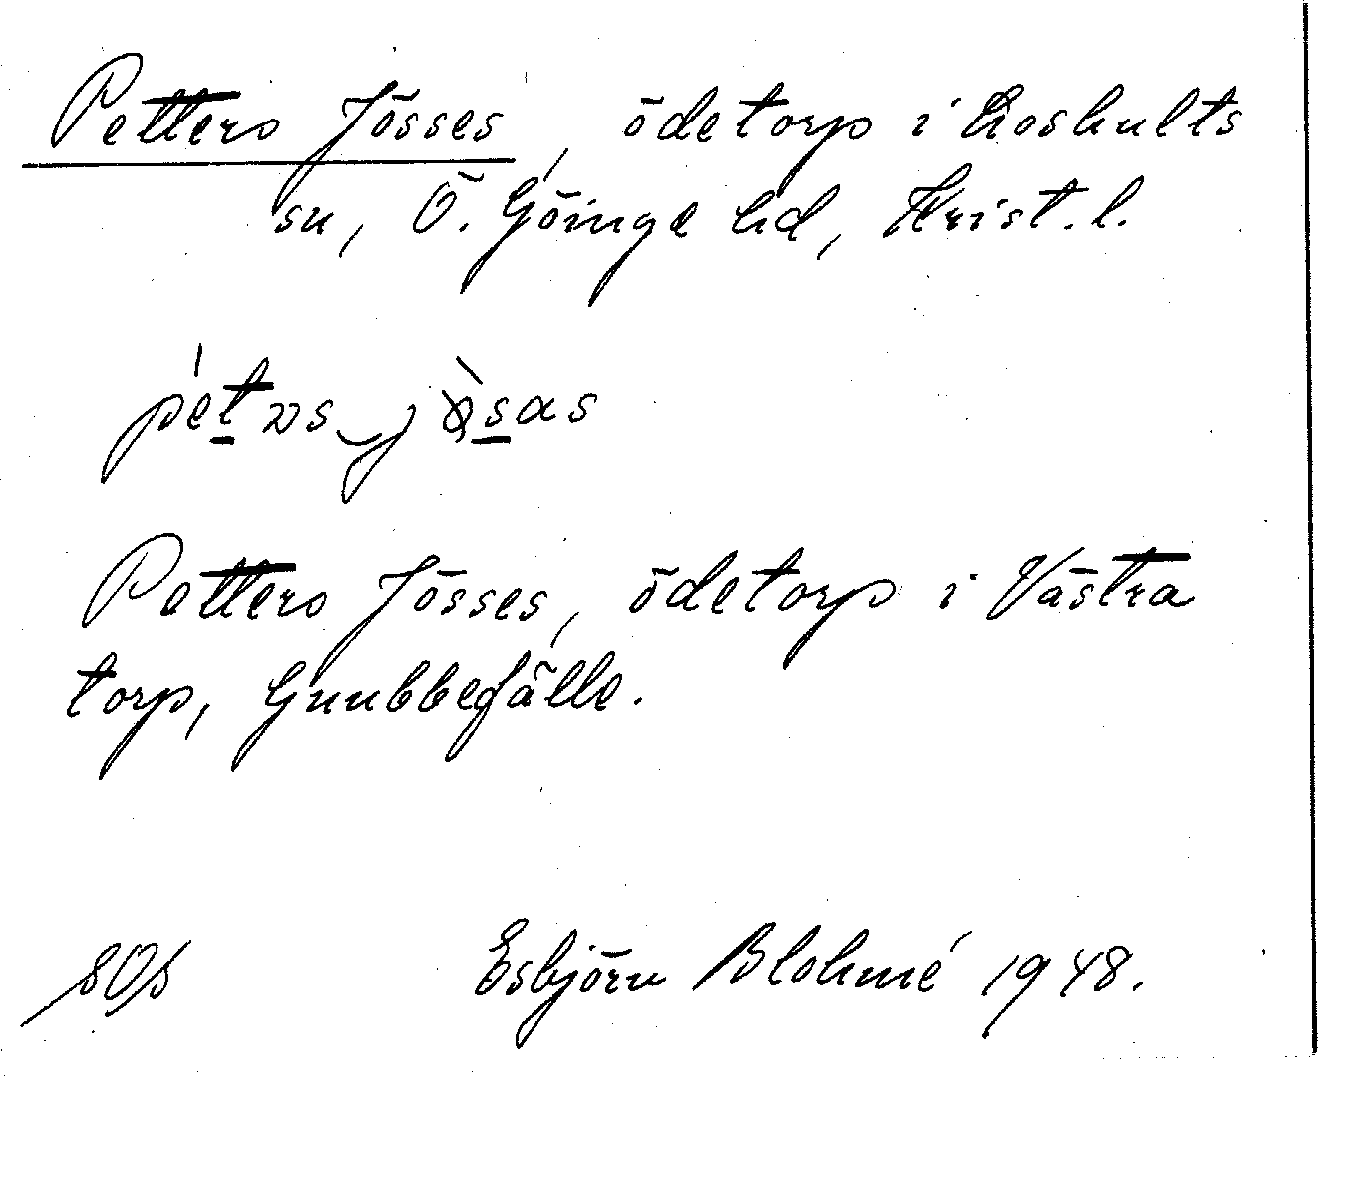 Petters Jösses, ödetorp i Loshults
sn, Ö. Göinge hd, Krist. l.
Petters Jösses, ödetorp i Västra
torp, Gnubbefälle.
Esbjörn Blohmé 1948.